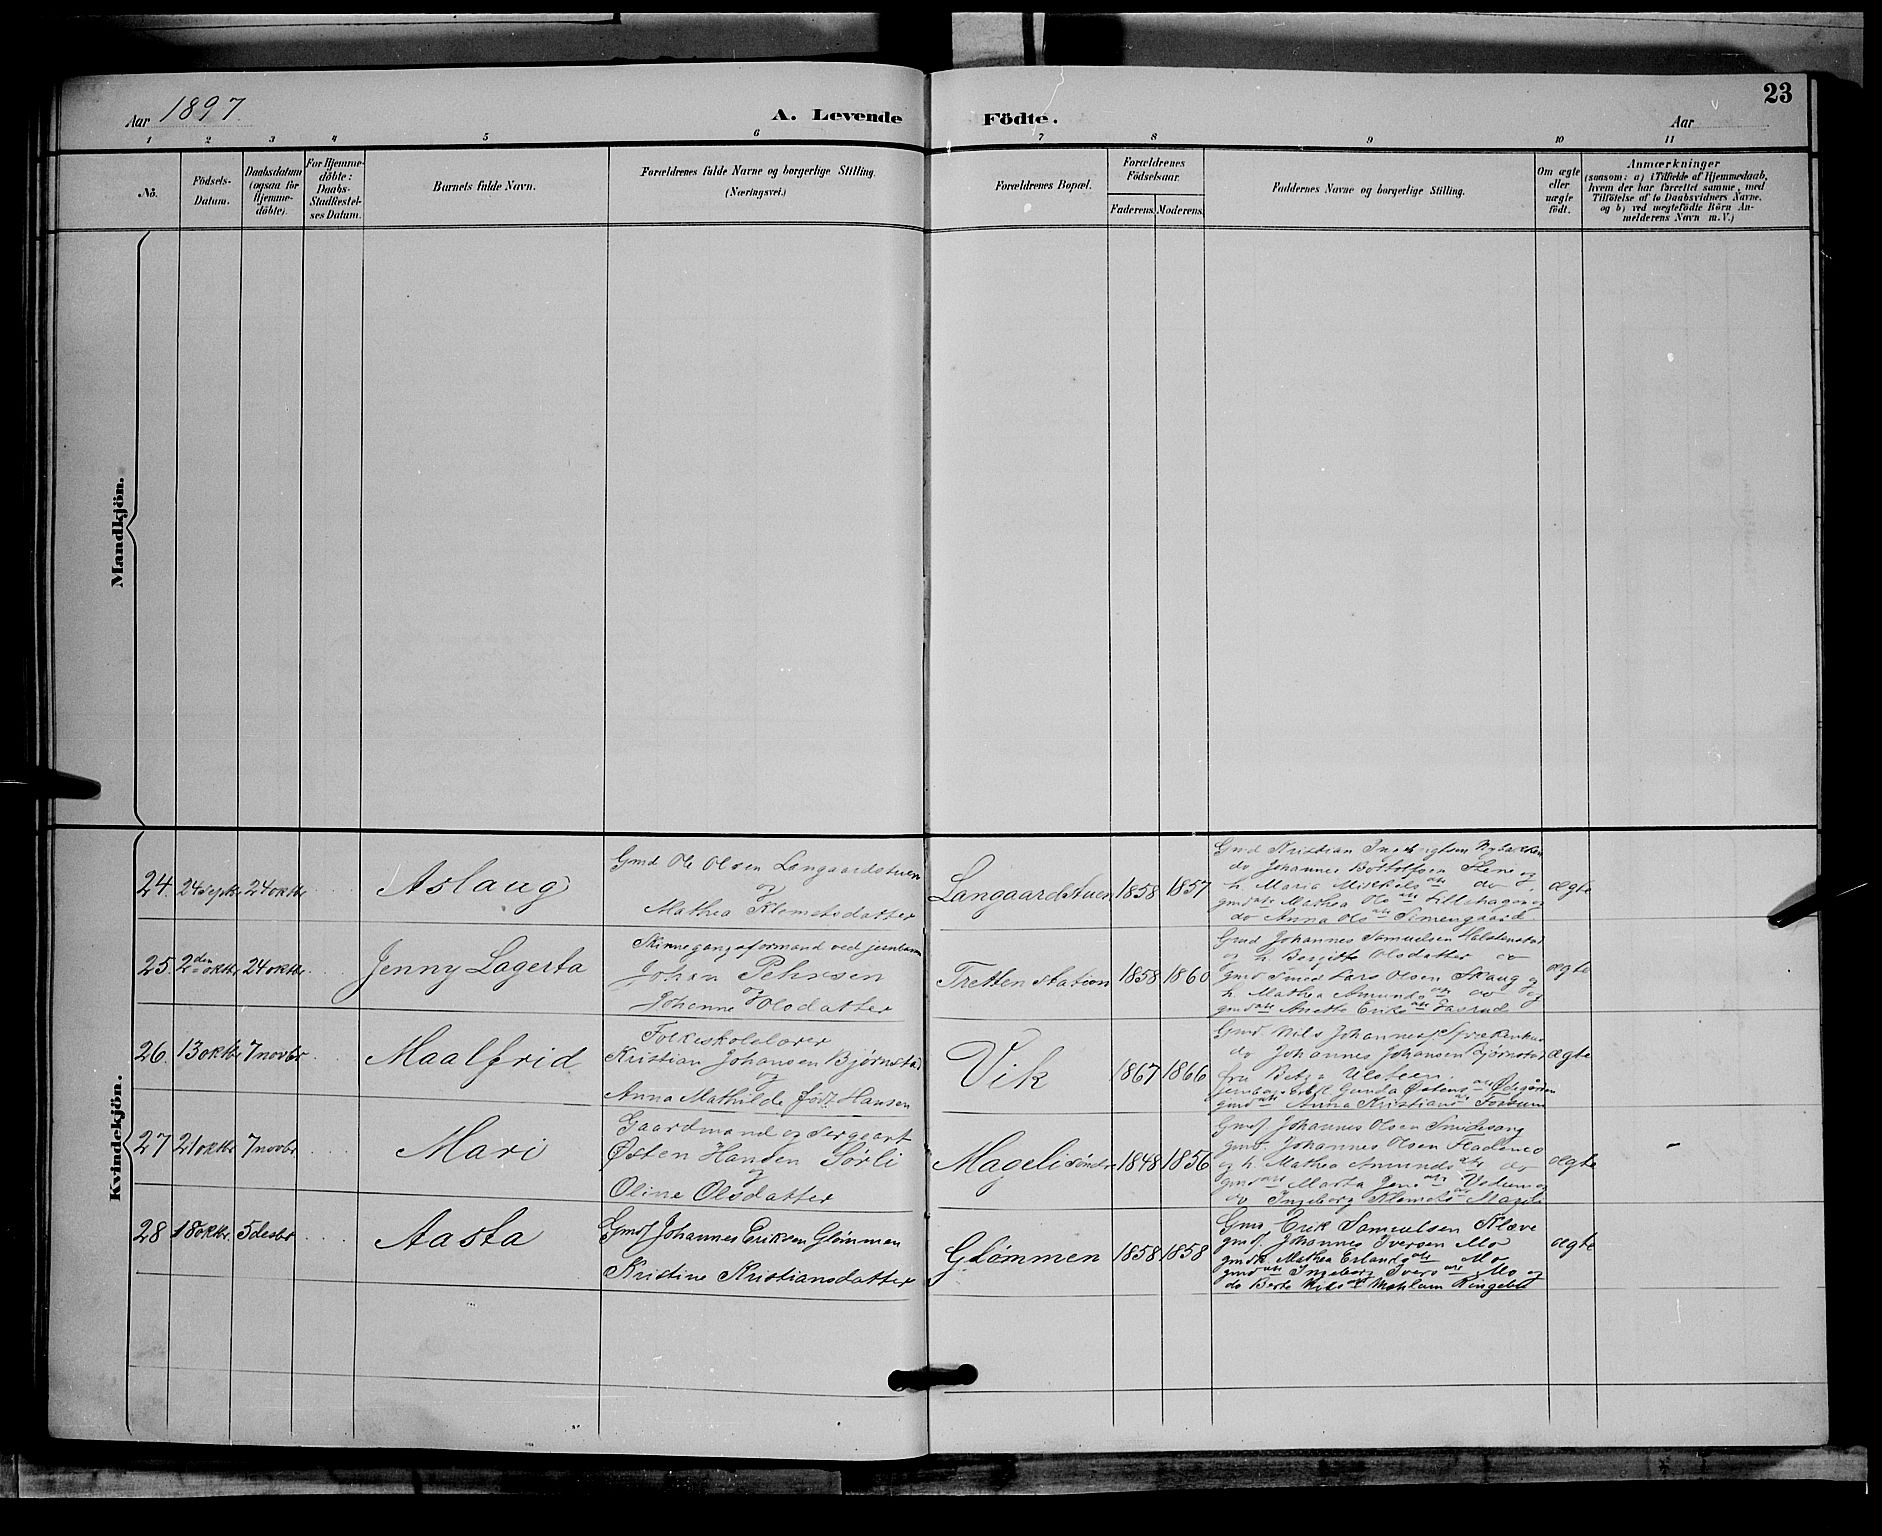 Aar 1897.
A. Levende Födte.
23
Aar
1 2 3 4 5 6 7 8 9 10 11
No.
Födsels-Datum.
Daabsdatum (ogsaa for Hjemme-döbte).
For Hjemme-döbte: Daabs-Stadfestel-ses Datum.
Barnets fulde Navn.
Forældrenes fulde Navne og borgerlige Stilling. (Næringsvei.)
Forældrenes Bopæl.
Forældrenes Födselsaar.
Faderens. Moderens.
Faddernes Navne og borgerlige Stilling.
Om ægte eller uægte födt.
Anmærkninger
(saasom: a) i Tilfælde af Hjemmedaab,
hvem der har forrettet samme, med
Tilföielse af to Daabsvidners Navne,
og b) ved uægtefödte Börn An-
melderens Navn m.V.)
Mandkjön.
Kvindekjön.
24. 24 septbr 24 oktbr Aslaug
Gmd Ole Olsen Langaardstuen
og
Mathea Klemetsdatter
Langaardstuen 1858 1857
Gmd Kristian
do Johannes Bottolfsen Stene og
h. Maria Mikkels dtr do og
gmd dtr Mathea Ols dtr Lillehagen og
do Anna Ols dtr Simengaard
ægte
25. 2den oktbr 24 oktbr Jenny Lagerta
Skinnegangsformand ved jernbanen
Johan Pehrsen
og
Johanne Olsdatter
Tretten station 1858 1860
Gmd Johannes Samuelsen
og h. Bergitte Olsdatter do
Lars Olsen Skaug og
h. Mathea Amunds dtr do og
gmd dtr Anette Eriks dtr
ægte
26. 13 oktbr 7 novbr Maalfrid
Folkeskolelærer
Kristian Johansen Bjørnstad
og
Anna Mathilde født Hansen
Vik 1867 1866
Gmd Nils Johannes.
do Johannes Johansen Bjørnstad
fru
Gunda Østens dtr Ødegården
gmd dtr Anna Kristians dtr Fossum
ægte
27 21 oktbr 7 novbr Mari
Gaardmand og Sergeant
Østen Hansen Sørli
og
Oline Olsdatter
Mageli søndre 1848 1856
Gmd Johannes Olsen Smidesang
gmd Johannes Olsen Flademo
og h. Mathea Amunds dtr do
gmd dtr Marta Jens dtr Vedum og
do Ingeborg Klemets dtr Mageli
ægte -
28 18 oktbr. 5 desbr Aasta
Gmd Johannes Eriksen Glømmen
Kristine Kristiansdatter
Glømmen 1858 1858
Gmd Erik Samuelsen Klæve
gmd. Johannes Iversen Mo
gmdk. Mathea Erlands dtr Mo
gmd dtr Ingeborg Ivers dtr Mo og
do Berte Nils dtr Ringebu
ægte